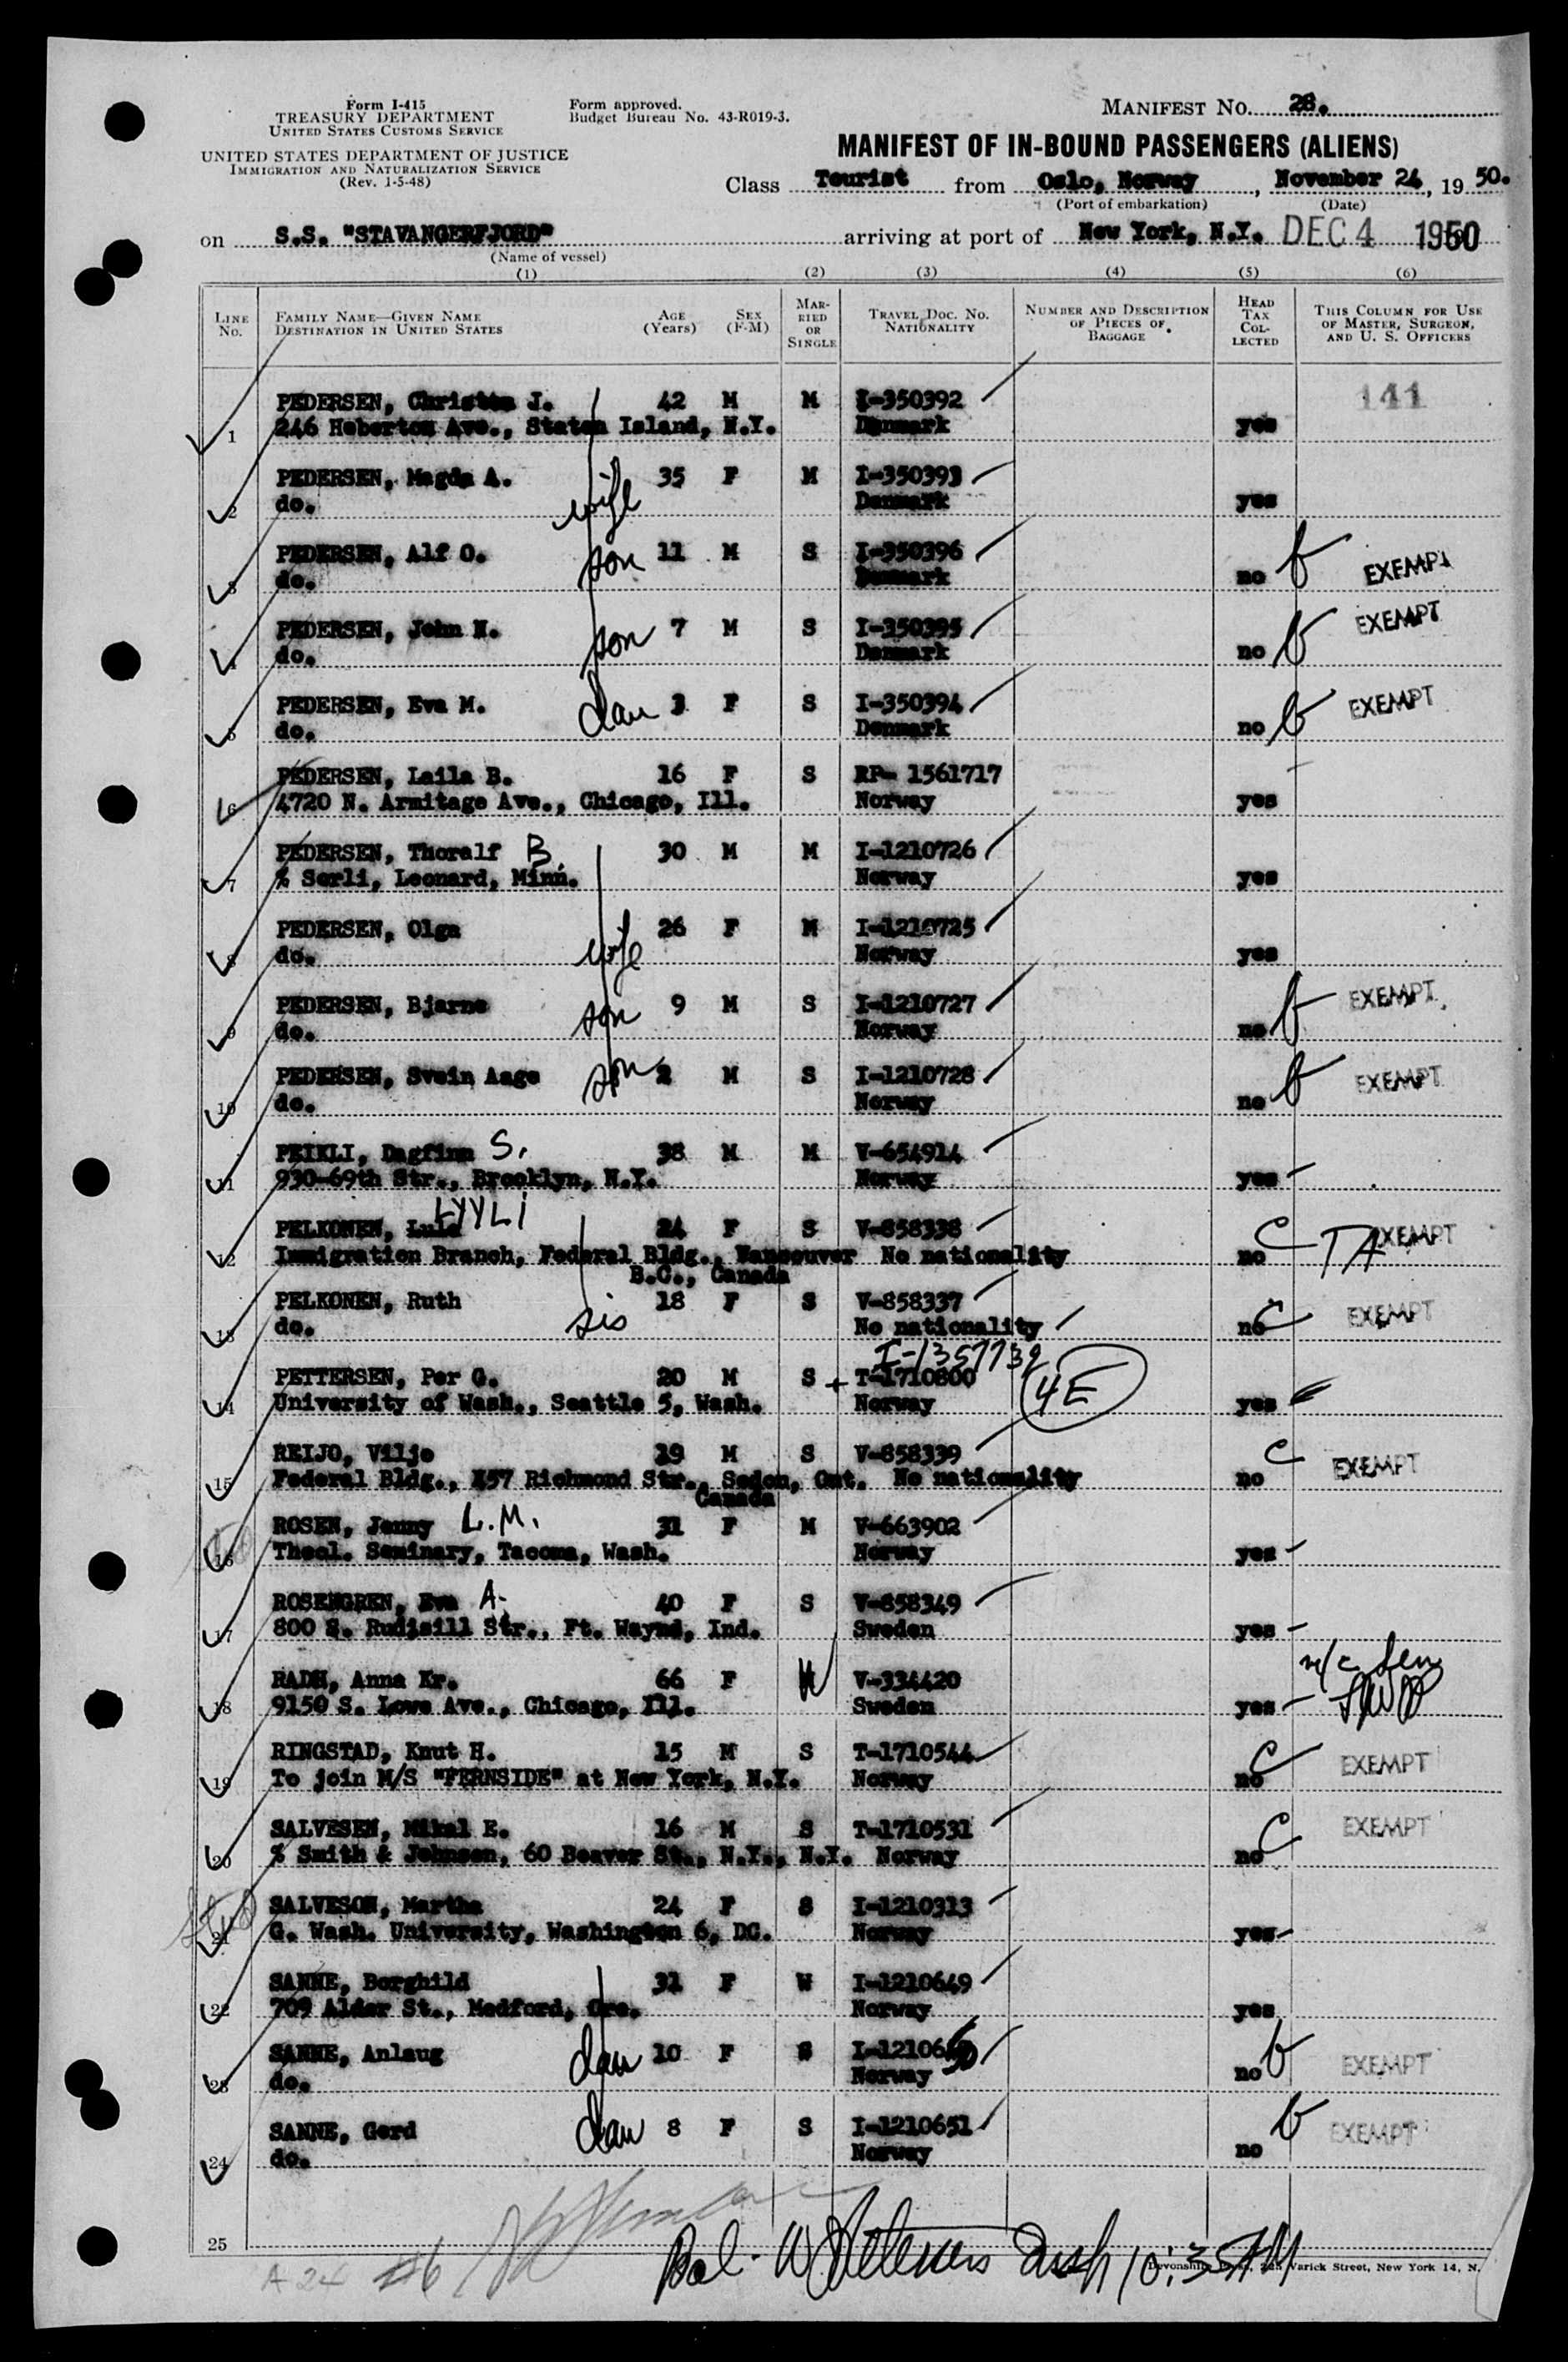 Form I-415
TREASURY DEPARTMENT
UNITED STATES CUSTOMS SERVICE
UNITED STATES DEPARTMENT OF JUSTICE
IMMIGRATION AND NATURALIZATION SERVICE
(Rev. 1-5-48)
Form approved.
Budget Bureau No. 43-R019-3.
MANIFEST NO. 28.
MANIFEST OF IN-BOUND PASSENGERS (ALIENS)
Class Tourist from Oslo, Norway, November 24, 1950.
(Port of embarkation) (Date)
on S.S. "STAVANGERFJORD" arriving at port of New York, N.Y. DEC 4 1950
(Name of vessel)
(1) (2) (3) (4) (5) (6)
LINE NO. FAMILY NAME—GIVEN NAME DESTINATION IN UNITED STATES AGE (Years) SEX (F-M) MARRIED OR SINGLE TRAVEL DOC. NO. NATIONALITY NUMBER AND DESCRIPTION OF PIECES OF BAGGAGE HEAD TAX COLLECTED THIS COLUMN FOR USE OF MASTER, SURGEON, AND U. S. OFFICERS
PEDERSEN, Christen J. 42 M M I-350392 141
1 246 Heberton Ave., Staten Island, N.Y. Denmark yes
PEDERSEN, Magda A. wife 35 F M I-350393
2 do. Denmark yes
PEDERSEN, Alf O. son 11 M S I-350396 EXEMPT
3 do. Denmark no
PEDERSEN, John N. son 7 M S I-350395 EXEMPT
4 do. Denmark no
PEDERSEN, Eva M. dau 3 F S I-350394 EXEMPT
5 do. Denmark no
PEDERSEN, Laila B. 16 F S RP- 1561717
6 4720 N. Armitage Ave., Chicago, Ill. Norway yes
PEDERSEN, Thoralf B. 30 M M I-1210726
7 % Serli, Leonard, Minn. Norway yes
PEDERSEN, Olga wife 26 F M I-1210725
8 do. Norway yes
PEDERSEN, Bjarne son 9 M S I-1210727 EXEMPT
9 do. Norway no
PEDERSEN, Svein Aage son 2 M S I-1210728 EXEMPT
10 do. Norway no
PEIKLI, Dagfinn S. 38 M M V-654914
11 930-69th Str., Brooklyn, N.Y. Norway yes
LYYLI
PELKONEN, 24 F S V-858338 C TA EXEMPT
12 Immigration Branch, Federal Bldg., Vancouver No nationality no
B.C., Canada
PELKONEN, Ruth sis 18 F S V-858337 C EXEMPT
13 do. No nationality no
I-1357739
PETTERSEN, Per G. 20 M S + T-1710800 4E
14 University of Wash., Seattle 5, Wash. Norway yes
REIJO, Viljo 19 M S V-858339 C EXEMPT
15 Federal Bldg., 457 Richmond Str., Ont. No nationality no
Canada
ROSEN, Jenny L.M. 31 F M V-663902
16 Theol. Seminary, Tacoma, Wash. Norway yes
ROSENGREN, Eva A. 40 F S V-858349
17 800 S. Rudisill Str., Ft. Wayne, Ind. Sweden yes
RADH, Anna Kr. 66 F W V-334420
18 9150 S. Lowe Ave., Chicago, Ill. Sweden yes
RINGSTAD, Knut H. 15 M S T-1710544 C EXEMPT
19 To join M/S "FERNSIDE" at New York, N.Y. Norway no
SALVESEN, Mikal E. 16 M S T-1710531 C EXEMPT
20 % Smith & Johnson, 60 Beaver St., N.Y., N.Y. Norway no
SALVESON, Martha 24 F S I-1210313
21 G. Wash. University, Washington 6, DC. Norway yes
SANNE, Borghild 31 F W I-1210649
22 709 Alder St., Medford, Ore. Norway yes
SANNE, Anlaug dau 10 F S I-1210650 EXEMPT
23 do. Norway no
SANNE, Gerd dau 8 F S I-1210651 EXEMPT
24 do. Norway no
25
A 24 #6
10:35 AM
Varick Street, New York 14, N.